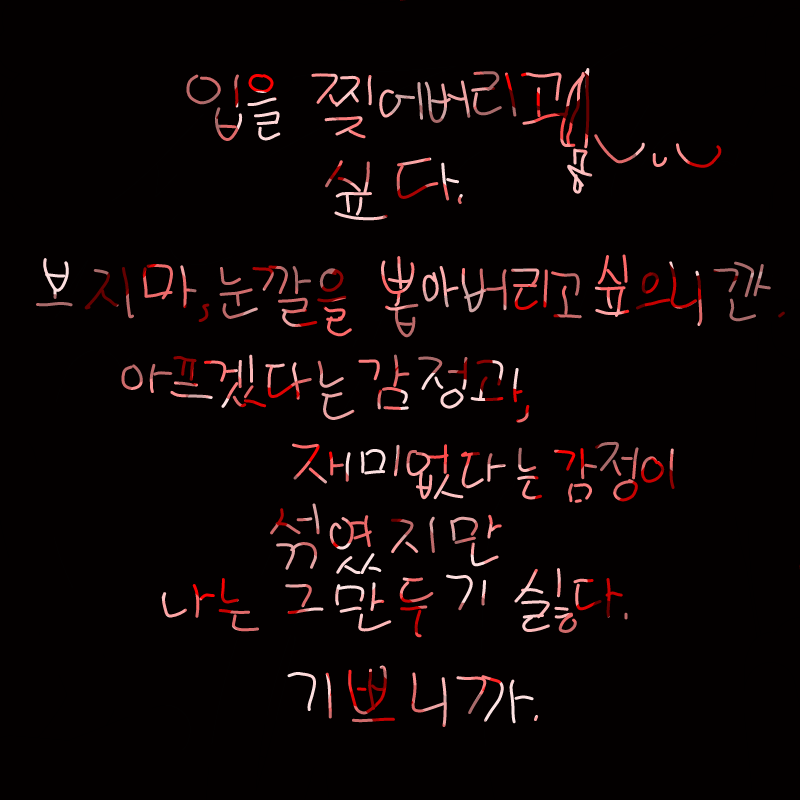 입을 찢어버리고
싶다.
보지마, 눈깔을 뽑아버리고싶으니깐.
아프겠다는감정과,
재미없다는감정이
섞였지만
나는 그만두기 싫다.
기쁘니까.